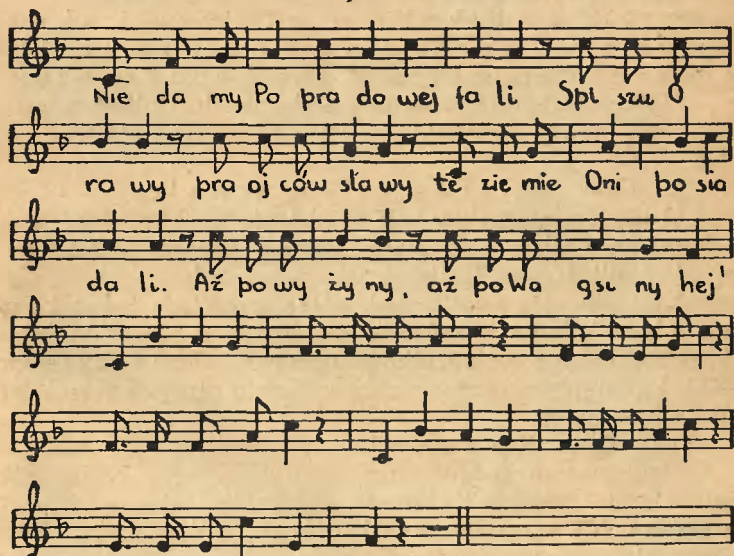 Nie da my Po pra do wej fa li Spi szu O
ra wy pra oj ców sła wy tė zie mie Oni po sia
da li. Aż po wy ży ny, aż po Wa gsi ny hej'